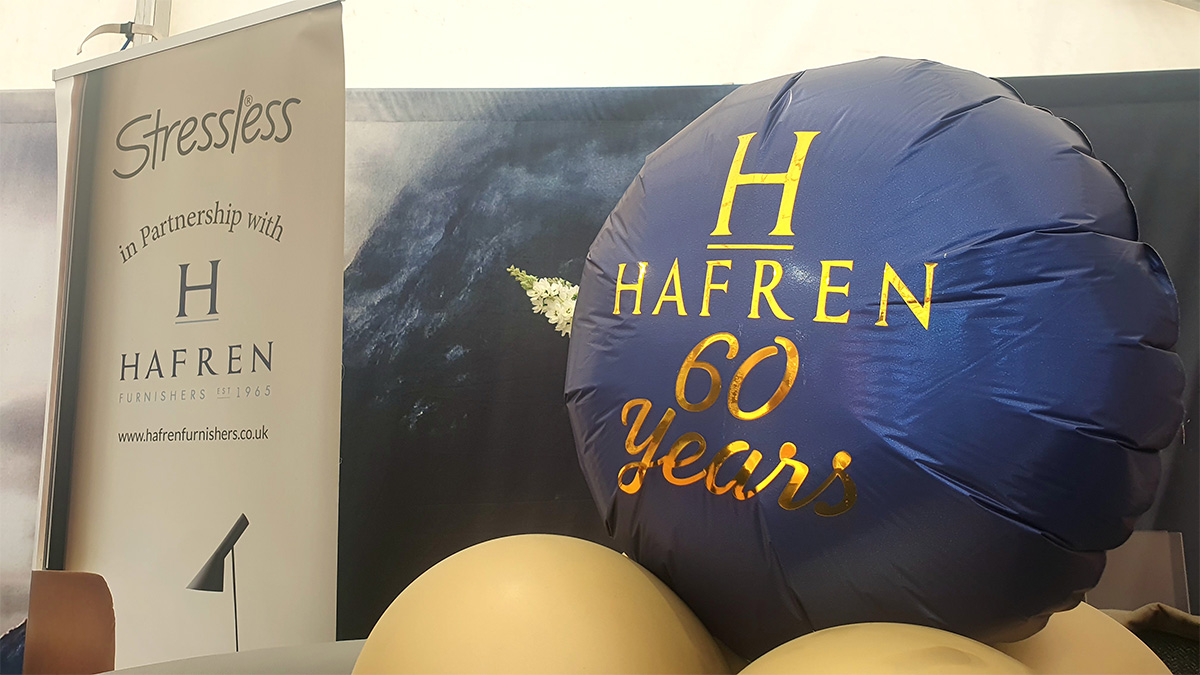 Stressless®
in Partnership with
H
HAFREN
FURNISHERS EST 1965
www.hafrenfurnishers.co.uk
H
HAFREN
60
Years